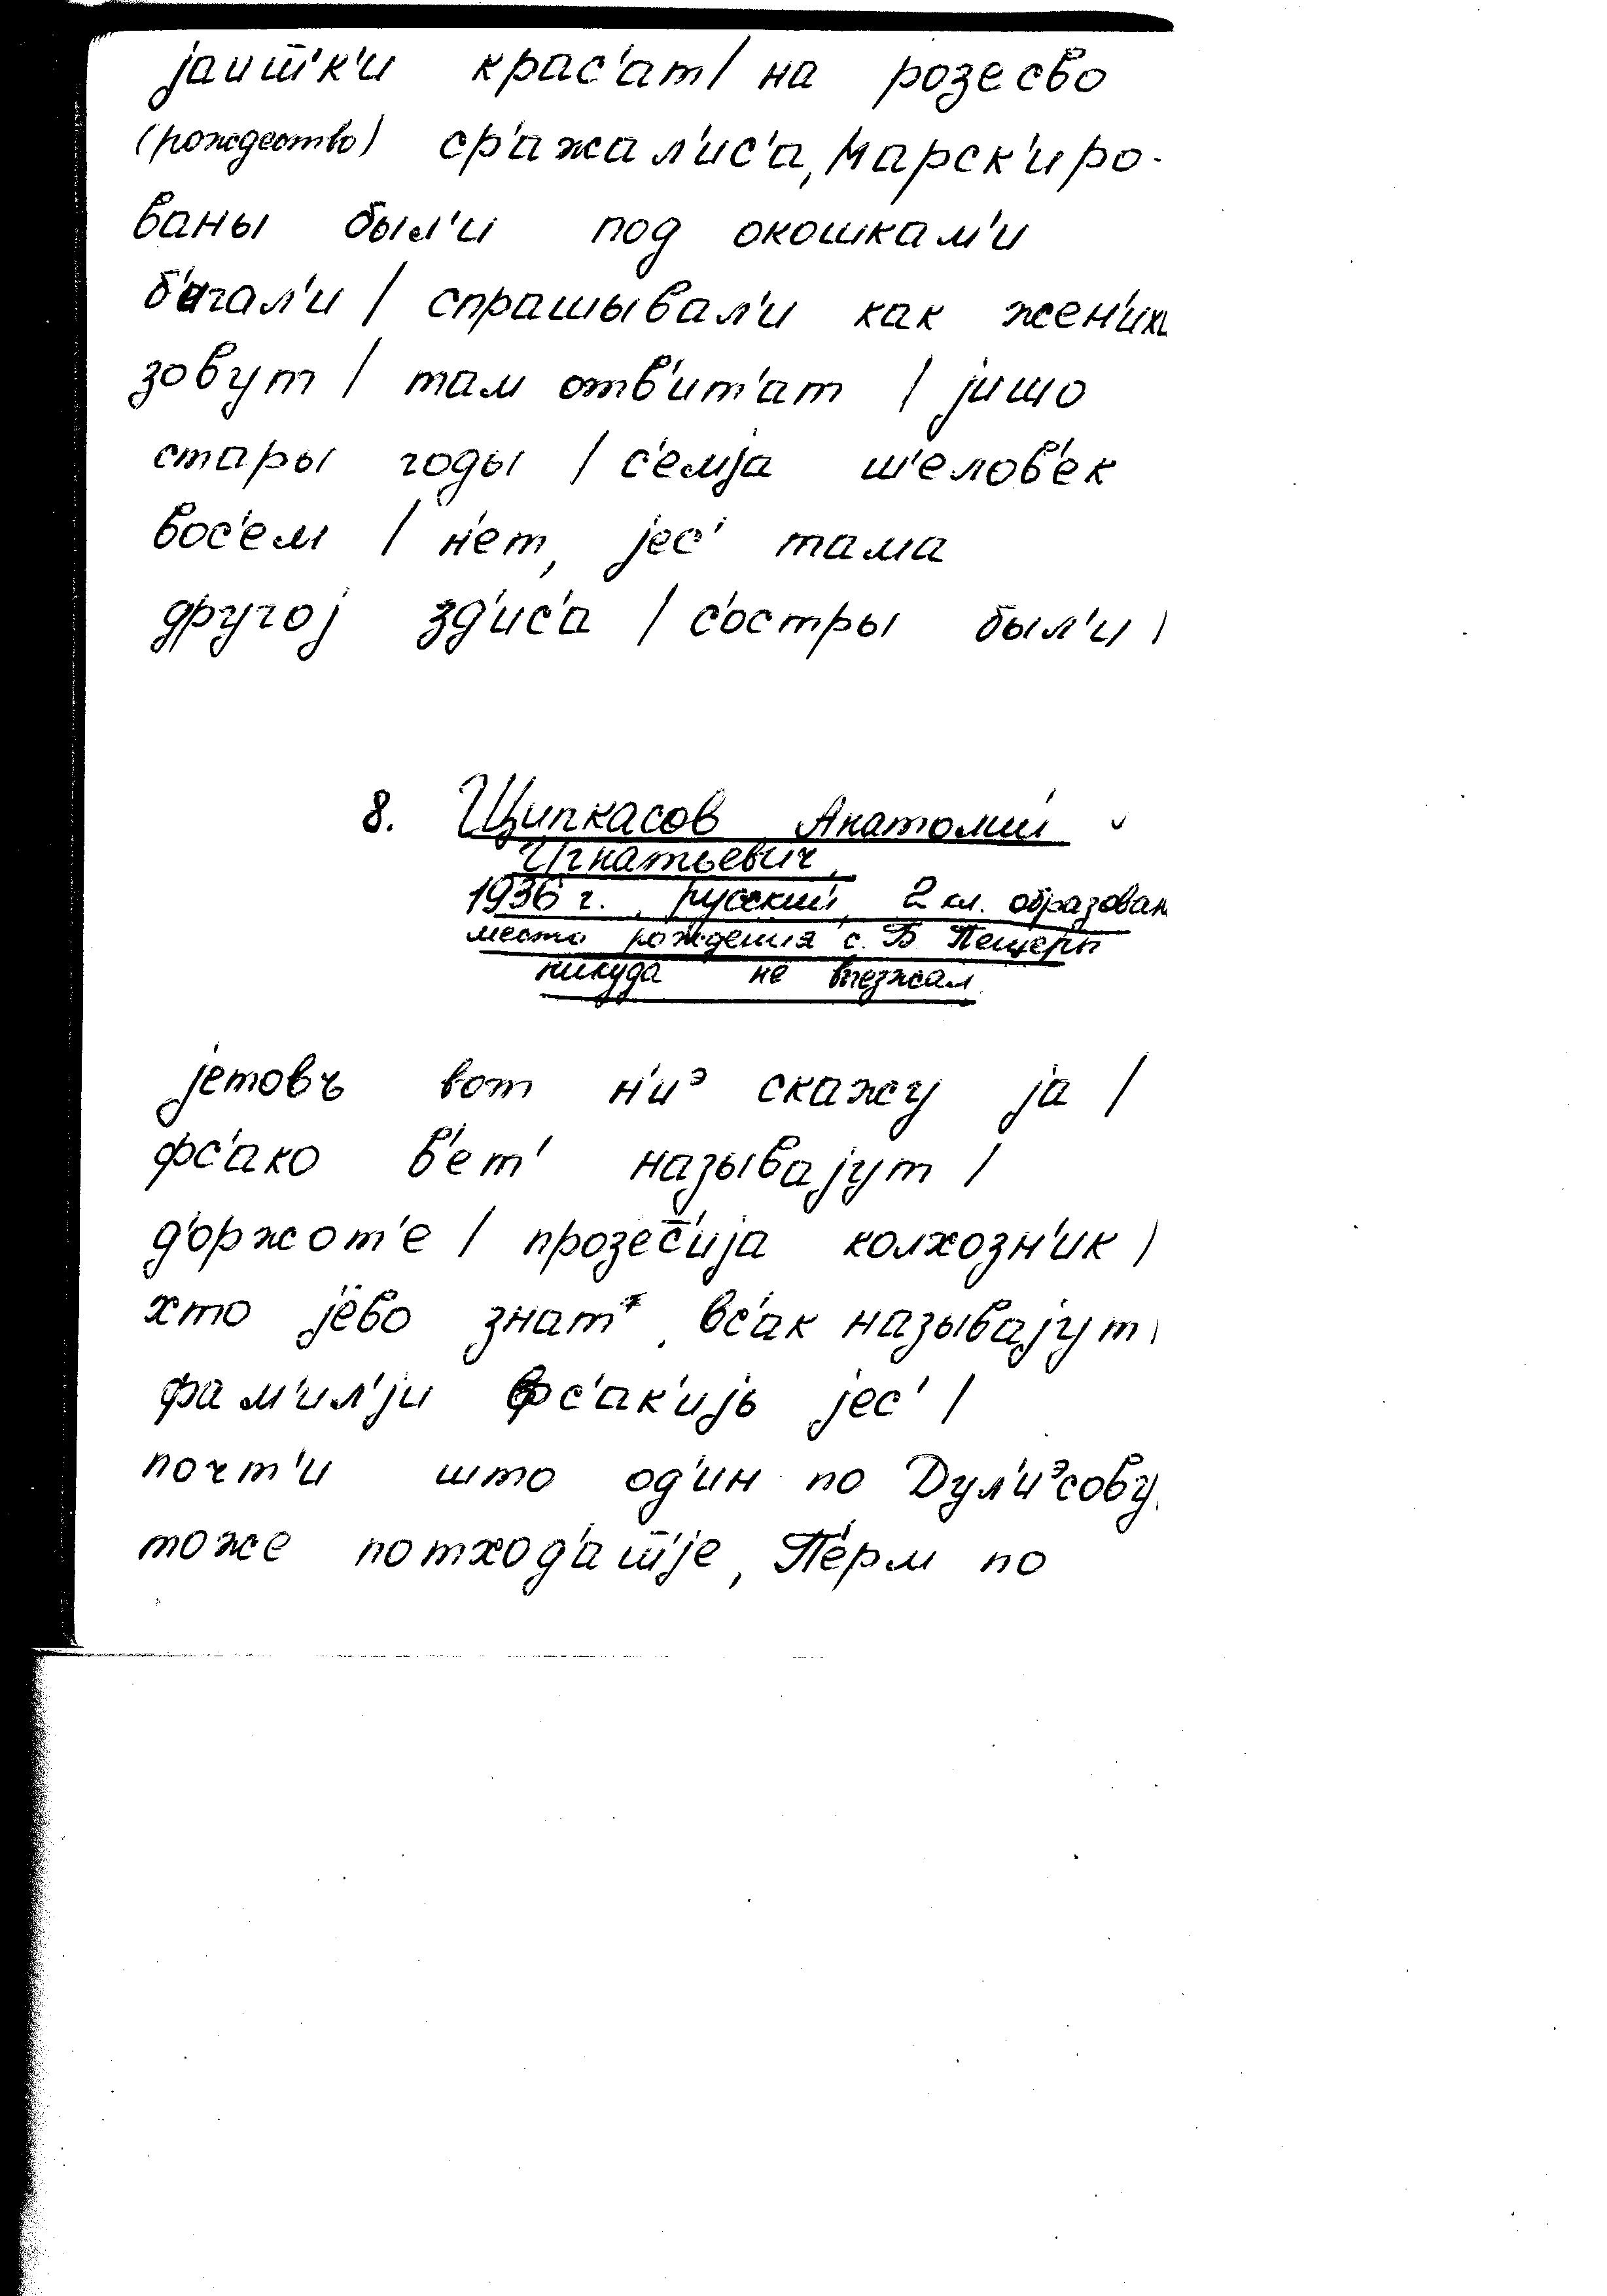 jаиш̅'к'и крас'ат / на розесво
(рождество) ср'ажал'ис'а, марск'иро-
ваны был'и под окошкам'и
б'игал'и / спрашывал'и как жен'иха
зовут / там отв'ит'ат / jишо
стары годы / с'емjа ш'елов'ек
вос'ем / н'ет, jес' тама
другоj зд'ис'а / с'остры был'и /
8. Щипкасов Анатолий
Игнатьевич,
1936 г., русский, 2 кл. образован
место рождения с. Б Пещеры
никуда не выезжал
jетовъ вот н'иэ скажу jа /
фс'ако в'ет' называjут /
д'оржот'е / прозес̅'иjа колхозн'ик /
хто jево знат, вс'ак называjут /
фам'ил'jи фс'ак'иjь jес' /
почт'и што од'ин по Дул'иэсову,
тоже потход'аш̅'jе, П'ерм по